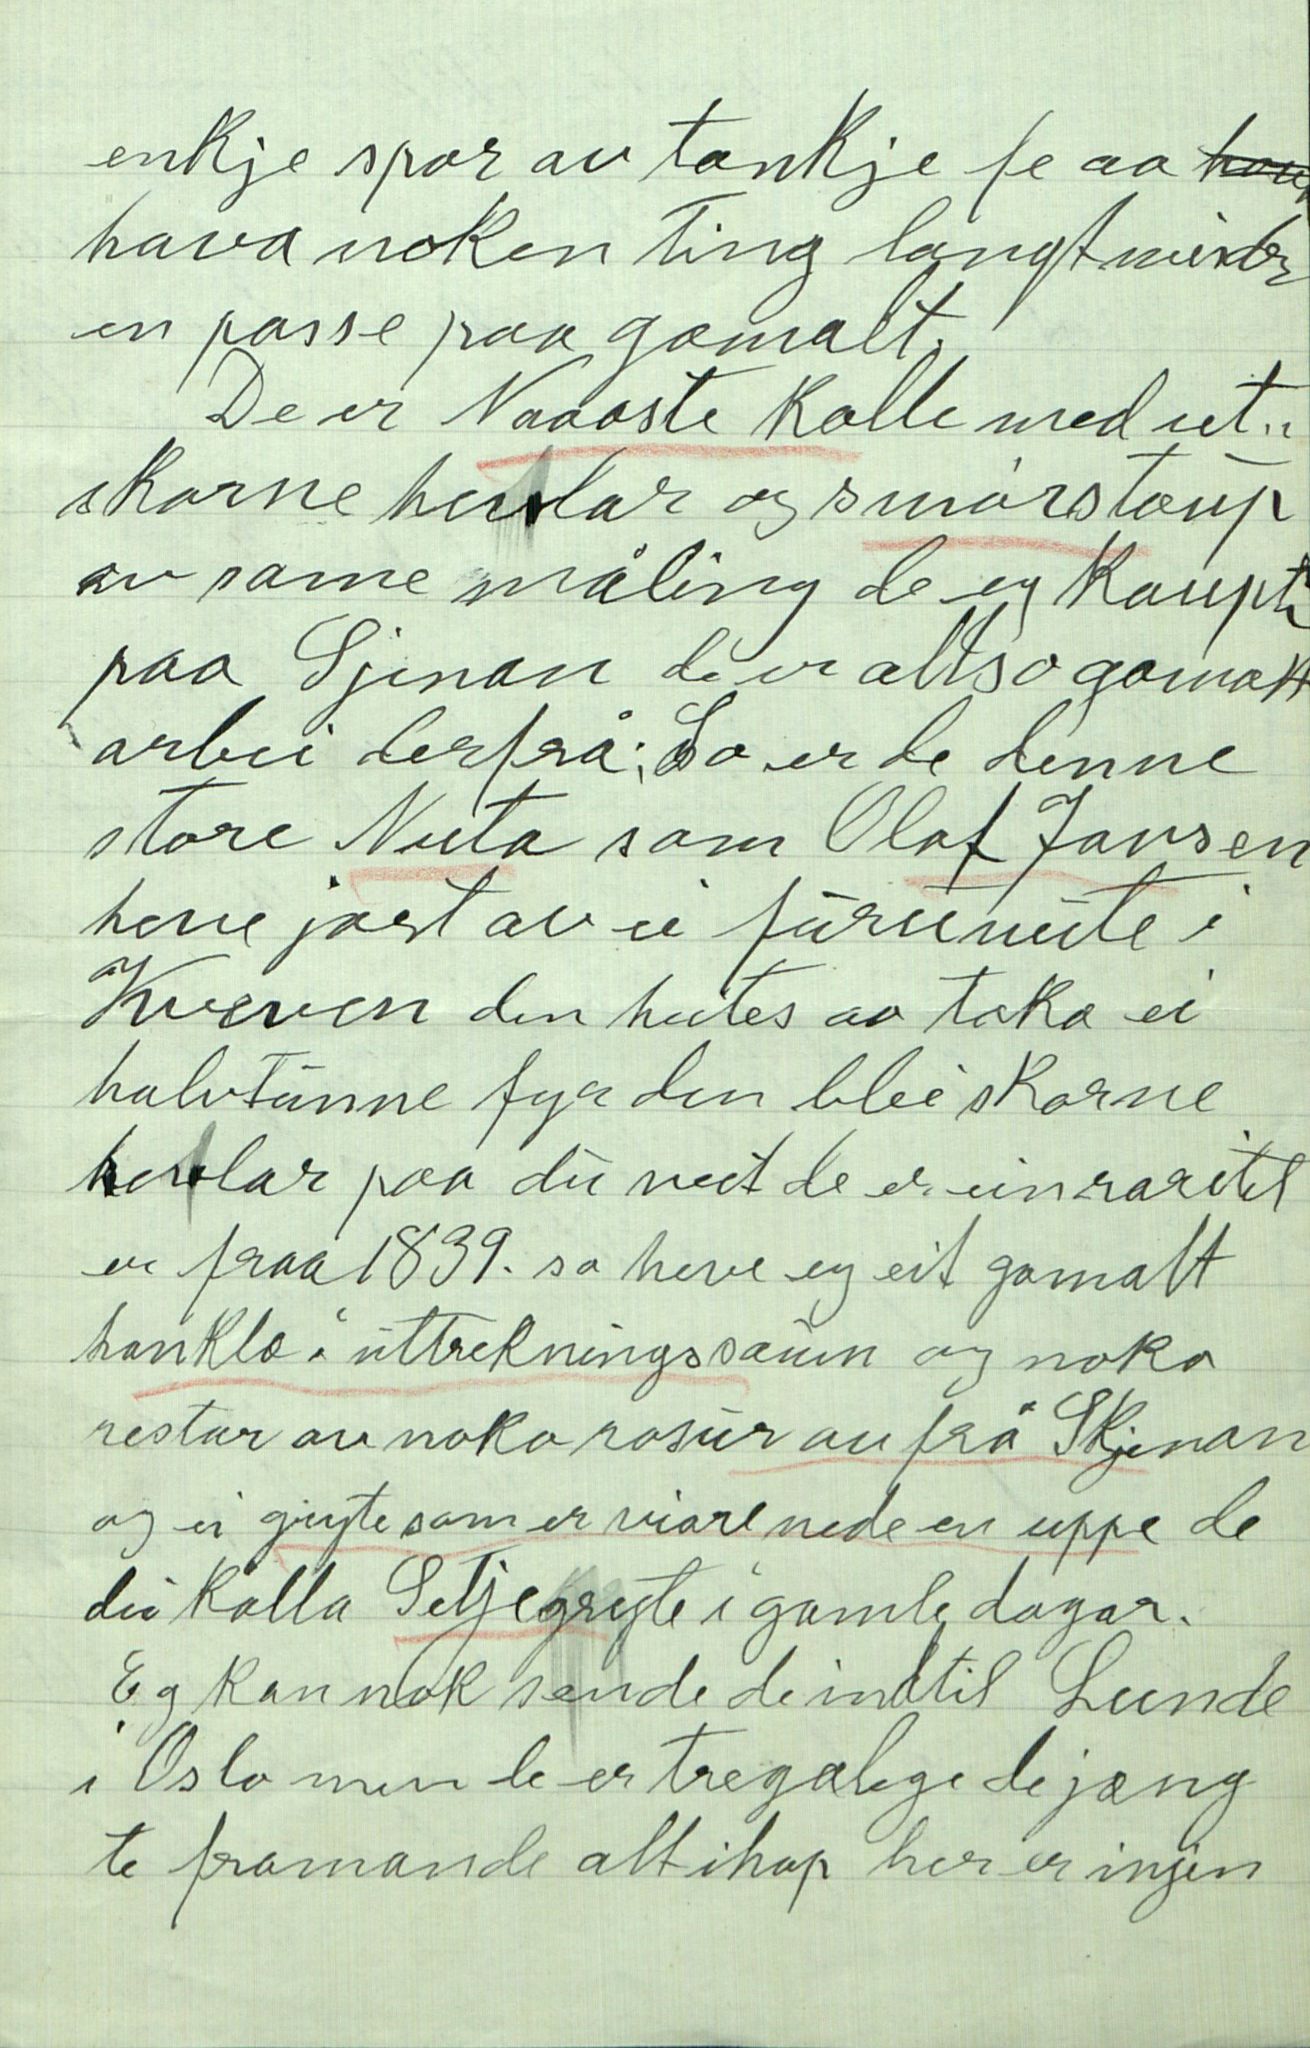 enkje spor av tankje fe aa hava
hava noken Ting langt mindr
en passe paa gamalt.
De er Naaoste kolle med ut„
skorne hevlar og smörstaup
av same måling de eg kaupte
paa Sjenan de er altso gamalt
arbei derfrå; So er de denne
store Nuta som Olaf Jansen
heve jort av ei fürunute i
Kverven den heites ao taka ei
halvtünne fyr den blei skorne
hevlar paa dü veit de er ein raritet
er fraa 1839. so heve eg eit gamalt
hankle i üttrekningssaum og noko
restar av noko rosür au frå Skjenan
og ei gryte som er viare nede en uppe de
dü kalla Setjegryte i gamle dagar.
Eg kan nok sende de indtil Lunde
i Oslo men de er tregelege de jæng
te framande alt ihap her er injen